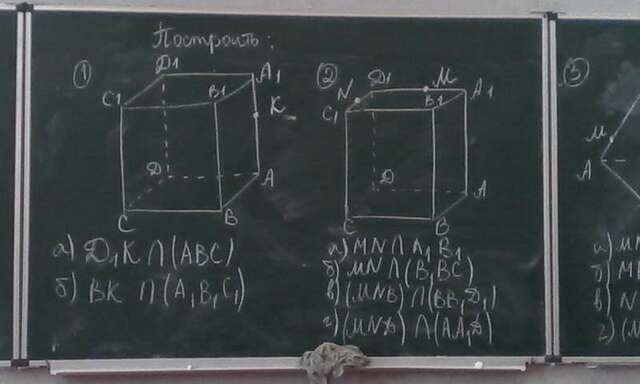 Построить:
①
D1
A1
C1
B1
K
D
A
C
B
а) D₁K ∩ (ABC)
б) BK ∩ (A₁B₁C₁)
②
D1
M
N
A1
C1
B1
D
A
C
B
а) MN ∩ A₁B₁
б) MN ∩ (B₁BC)
в) (MNB) ∩ (BB₁D₁)
г) (MND) ∩ (AA₁D)
③
M
A
а)
б)
в) N
г)